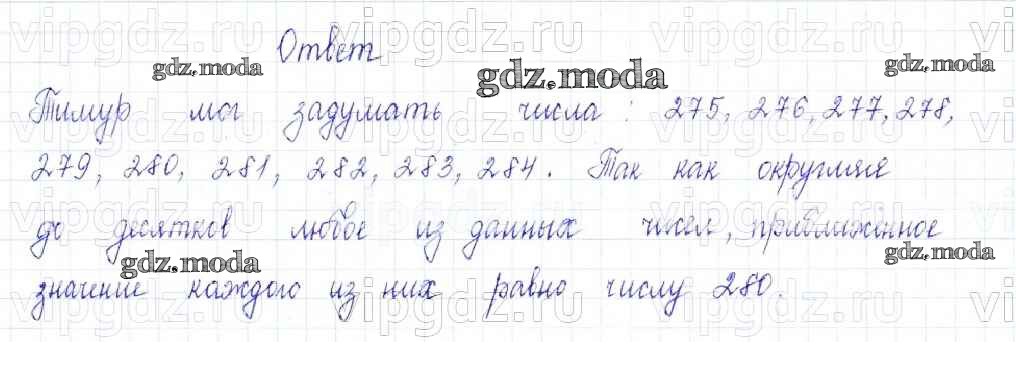 Ответ
Тимур мог задумать числа: 275, 276, 277, 278,
279, 280, 281, 282, 283, 284. Так как округляя
до десятков любое из данных чисел, приближённое
значение каждого из них равно числу 280.
gdz.moda
gdz.moda
gdz.moda
gdz.moda
gdz.moda
gdz.moda
vipgdz.ru
vipgdz.ru
vipgdz.ru
vipgdz.ru